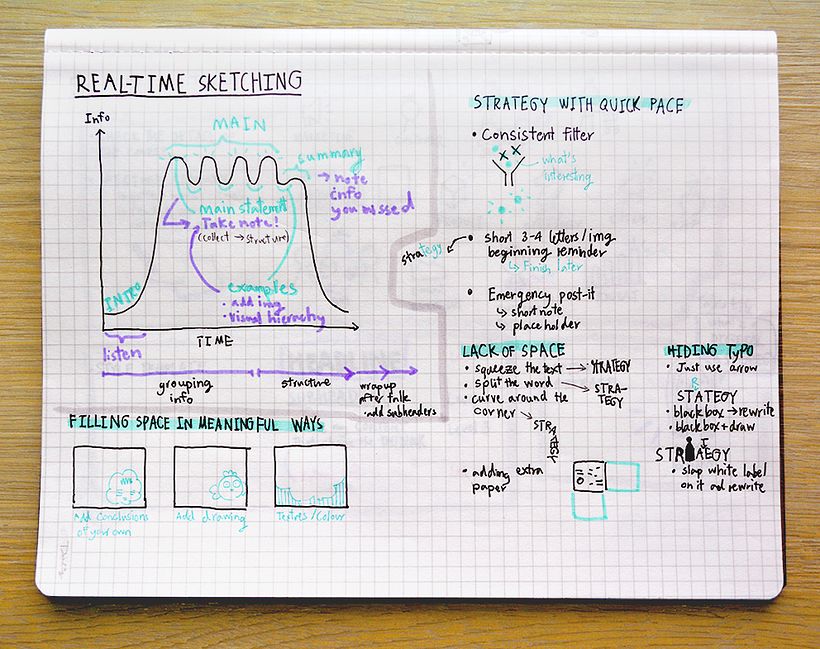 REAL-TIME SKETCHING
Info
MAIN
summary
→ note
info
you missed
main statement
Take note!
(collect → structure)
examples
• add img
• visual hierarchy
INTRO
TIME
listen
grouping
info
structure
wrapup
after talk
• add subheaders
FILLING SPACE IN MEANINGFUL WAYS
Add Conclusions
of your own
Add drawing
Textures/Colour
STRATEGY WITH QUICK PACE
• Consistent filter
what's
interesting
strategy
• short 3-4 letters/img
beginning reminder
↳ Finish later
• Emergency post-it
↳ short note
↳ place holder
LACK OF SPACE
• squeeze the text → STRATEGY
• split the word → STRA-
TEGY
• curve around the
corner
STRATEGY
• adding extra
paper
HIDING TYPO
• Just use arrow
R
STATEGY
• black box → rewrite
• black box + draw
T
STRAEGY
• slap white label
on it and rewrite